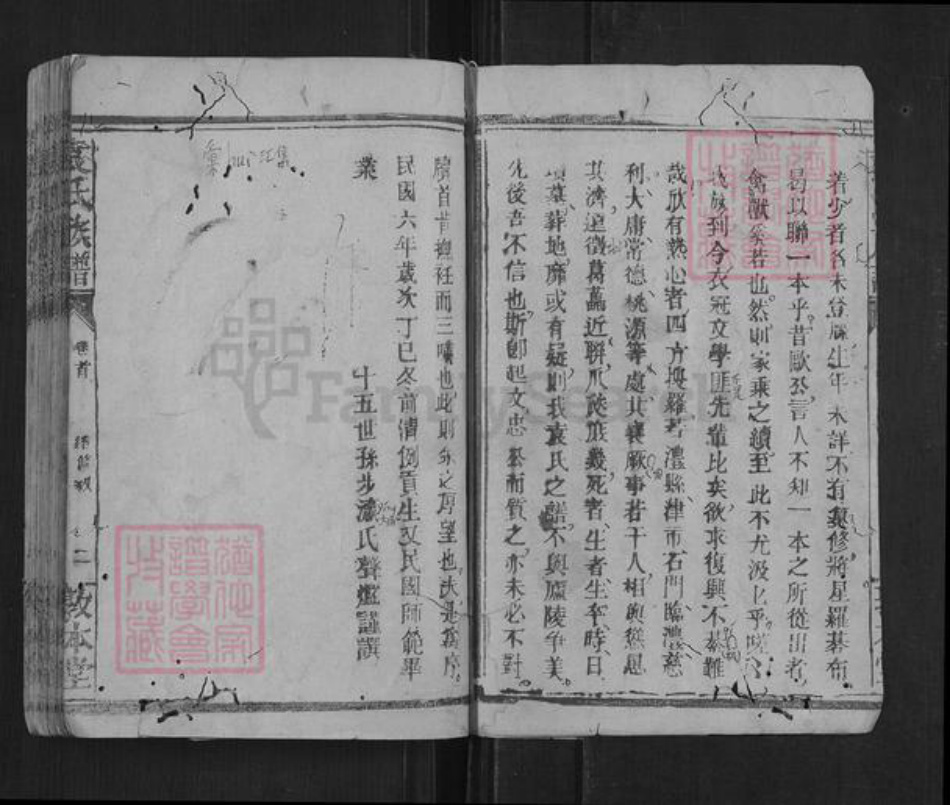 者少者各未登厥生年未詳不有纂修將星羅棊布
曷以聯一本乎昔歐公言人不知一本之所從出者
禽獸矣若也然則家乘之續至此不尤汲乎
族到今衣冠文學匪先輩比矣欲求復興不綦難
哉欣有熱心者四方搜羅若澧縣津市石門臨澧慈
利大庸常德桃源等處共襄厥事若干人相與慫恿
其濟遠徵葛藟近聯瓜瓞族幾死者生者生卒時日
墳墓葬地靡或有疑則我袁氏之譜不與廬陵爭美
先後吾不信也斯卽起文忠公而質之亦未必不對
首昔而三嘆也此則余之厚望也夫是爲序
民國六年歲次丁巳冬前清例貢生又民國師範畢
業
十五世孫步瀛氏聲謹譔
袁氏族譜
卷首
二
敦本堂
FamilySearch